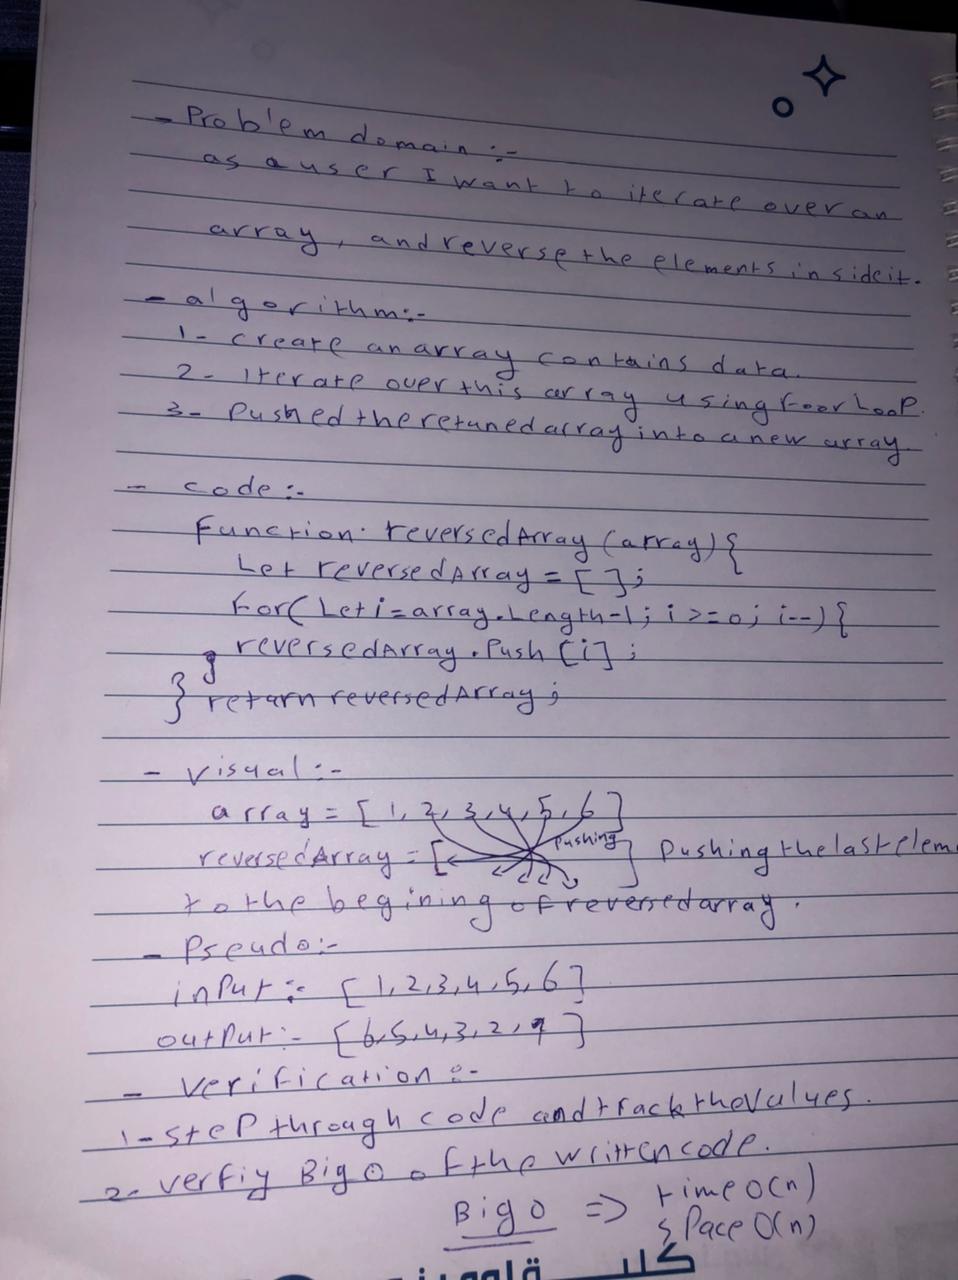 - Problem domain :-
as a user I want to iterate over an
array, and reverse the elements inside it.
- algorithm:-
1- create an array contains data.
2- Iterate over this array using Foor LooP.
3- Pushed the retuned array into a new array.
- code :-
Function reversedArray (array) {
Let reversedArray = [ ];
For( Let i = array.Length-1; i >= 0; i--) {
reversedArray.Push [i] ;
}
} return reversedArray ;
- Visual :-
array = [ 1, 2, 3, 4, 5, 6 ]
Pushing
reversedArray = [ ] Pushing the last elem
to the begining of reversed array.
- Pseudo :-
inPut :- [ 1, 2, 3, 4, 5, 6 ]
outPut :- [ 6, 5, 4, 3, 2, 1 ]
- Verification :-
1- steP through code and track the Values.
2- verfiy Big O of the written code.
Big O => time O(n)
sPace O(n)